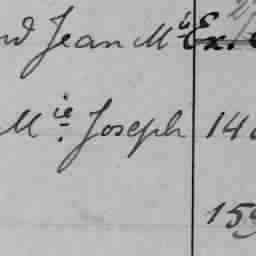 Jean Mie Ex.
Mie. Joseph 14
15